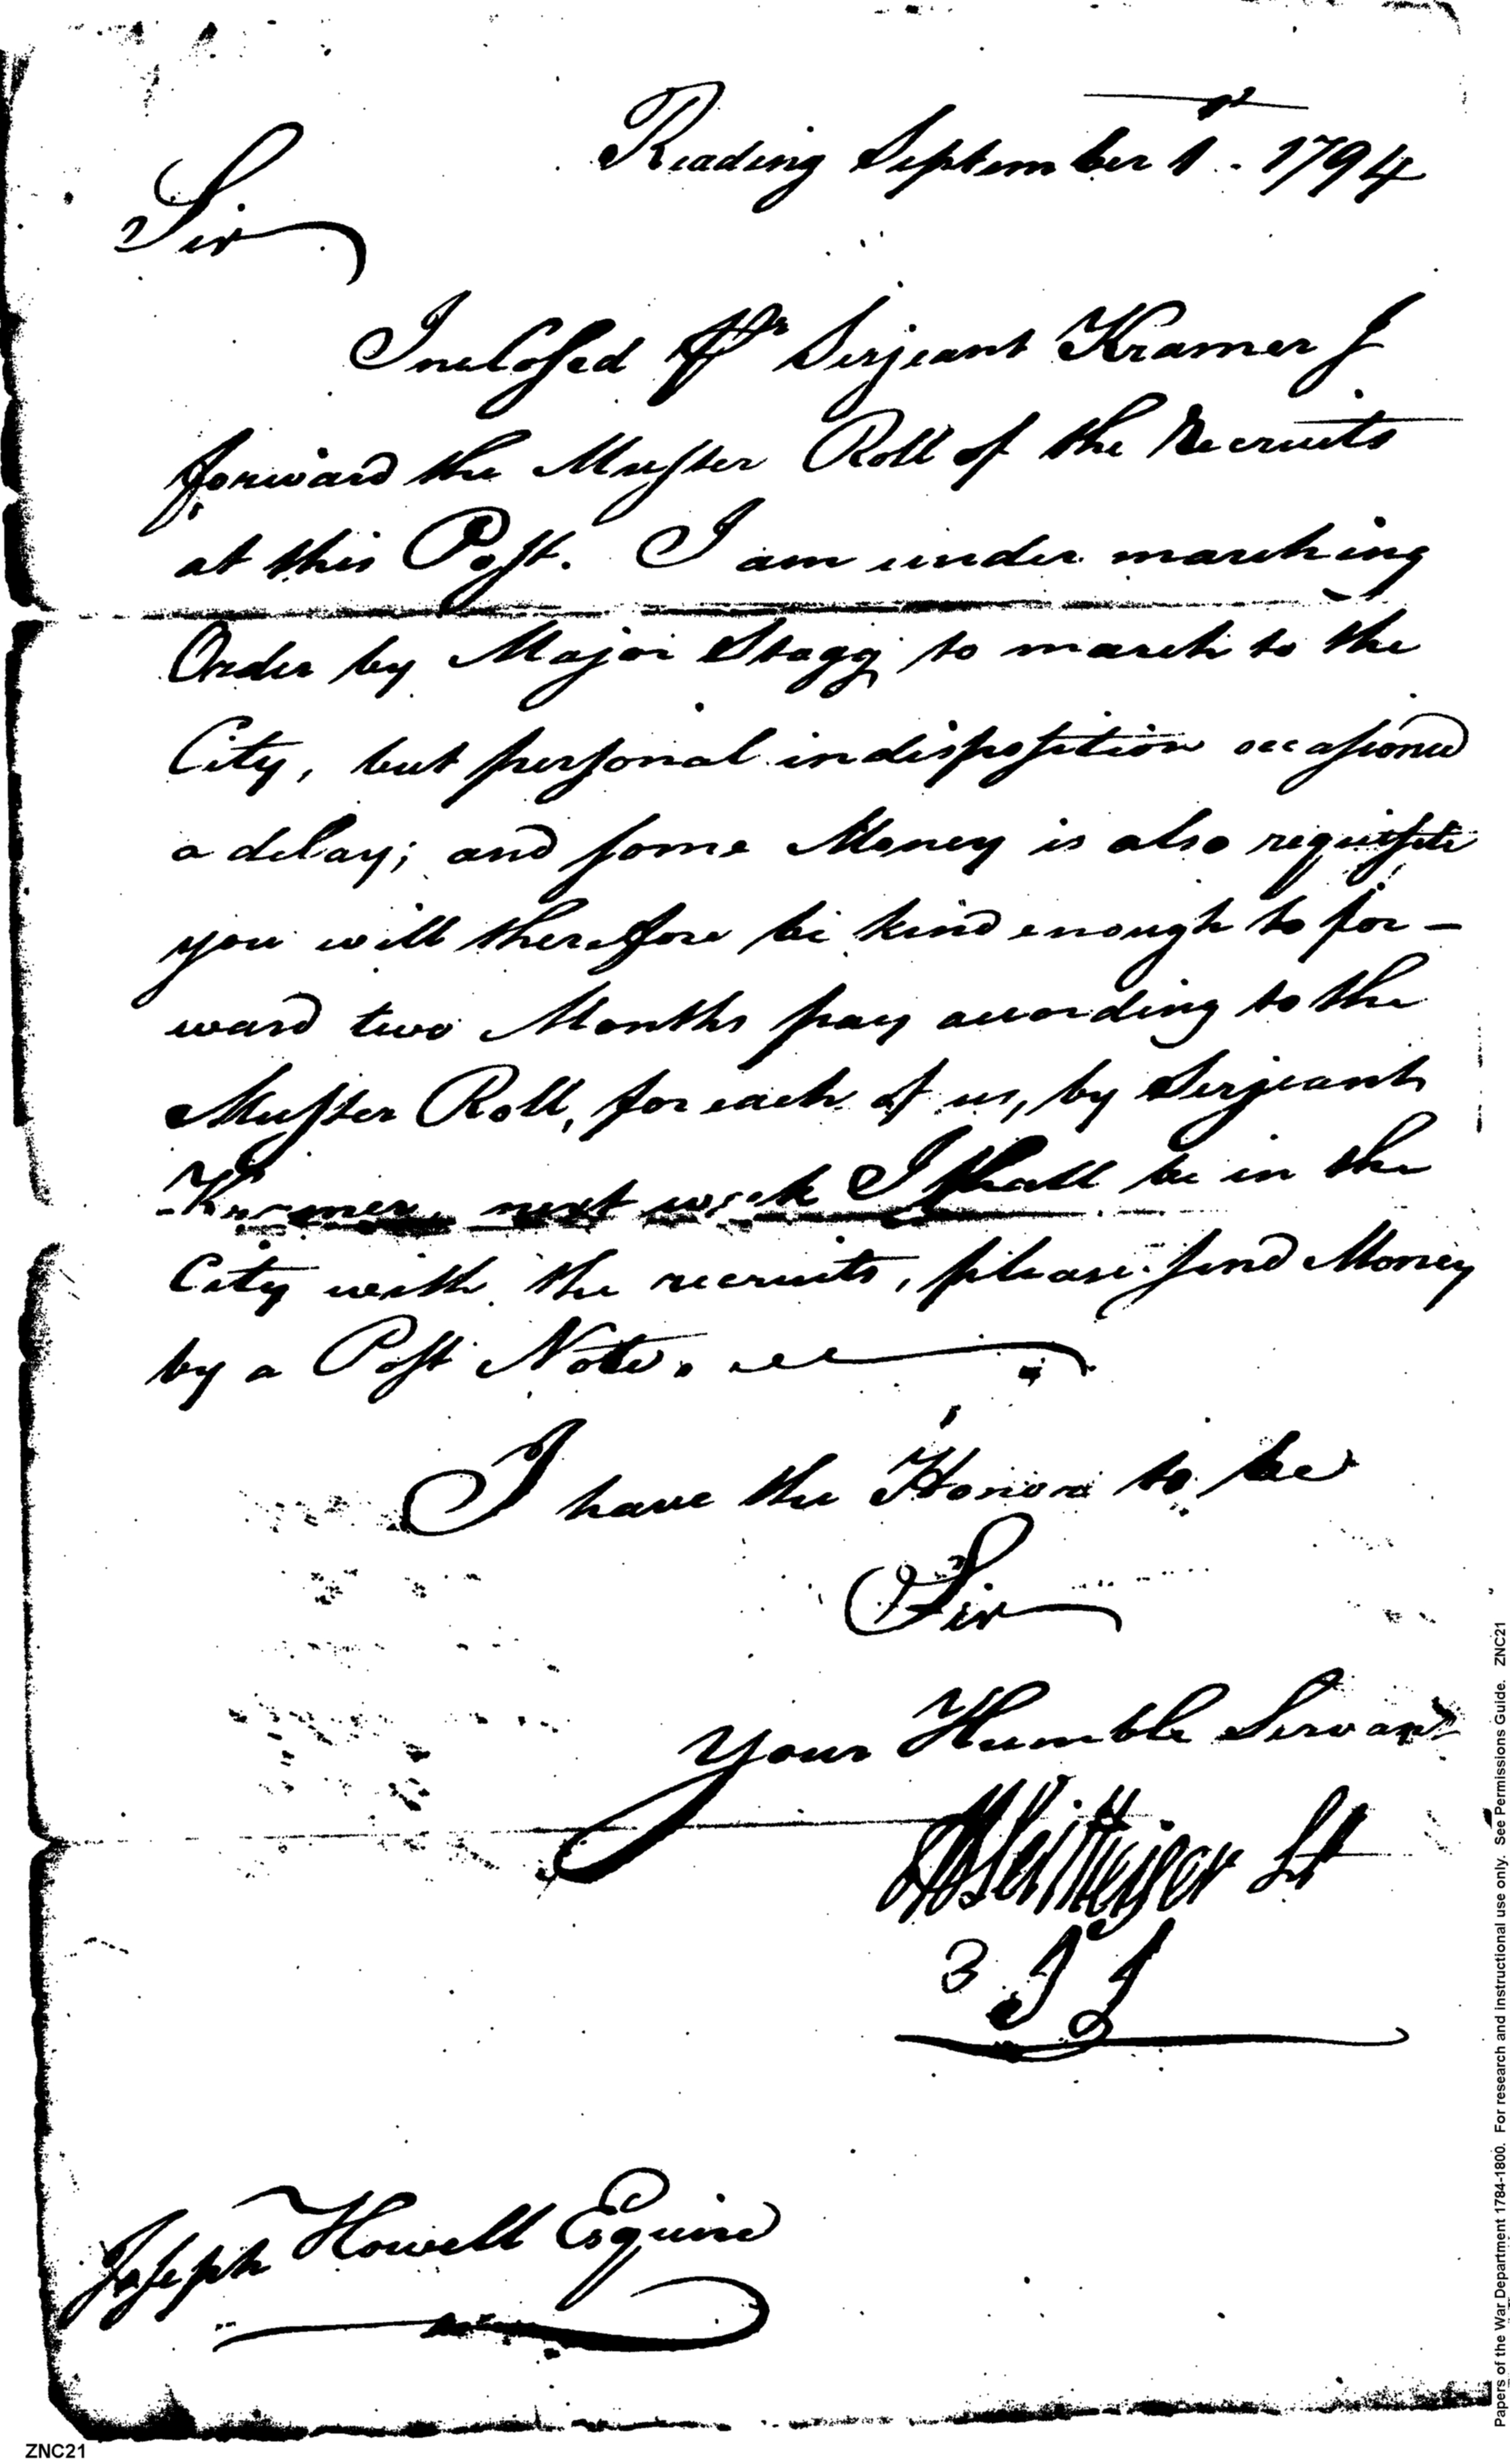 Reading September 1st 1794
Sir
Inclosed pr Serjeant Kramer I
forward the Muster Roll of the Recruits
at this Post. I am under marching
Order by Major Stagg to march to the
City, but personal indisposition occasioned
a delay; and some Money is also requisite
you will therefore be kind enough to for-
ward two Months pay according to the
Muster Roll, for each of us, by Serjeant
Kramer, next week I shall be in the
City with the recruits, please send Money
by a Post Note.
I have the Honor to be
Sir
Your Humble Servant
Lt
3
Joseph Howell Esquire
ZNC21
Papers of the War Department 1784-1800. For research and instructional use only. See Permissions Guide. ZNC21